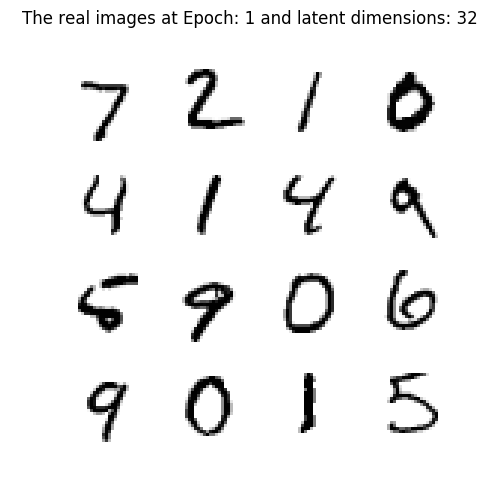 The real images at Epoch: 1 and latent dimensions: 32
7 2 1 0
4 1 4 9
5 9 0 6
9 0 1 5